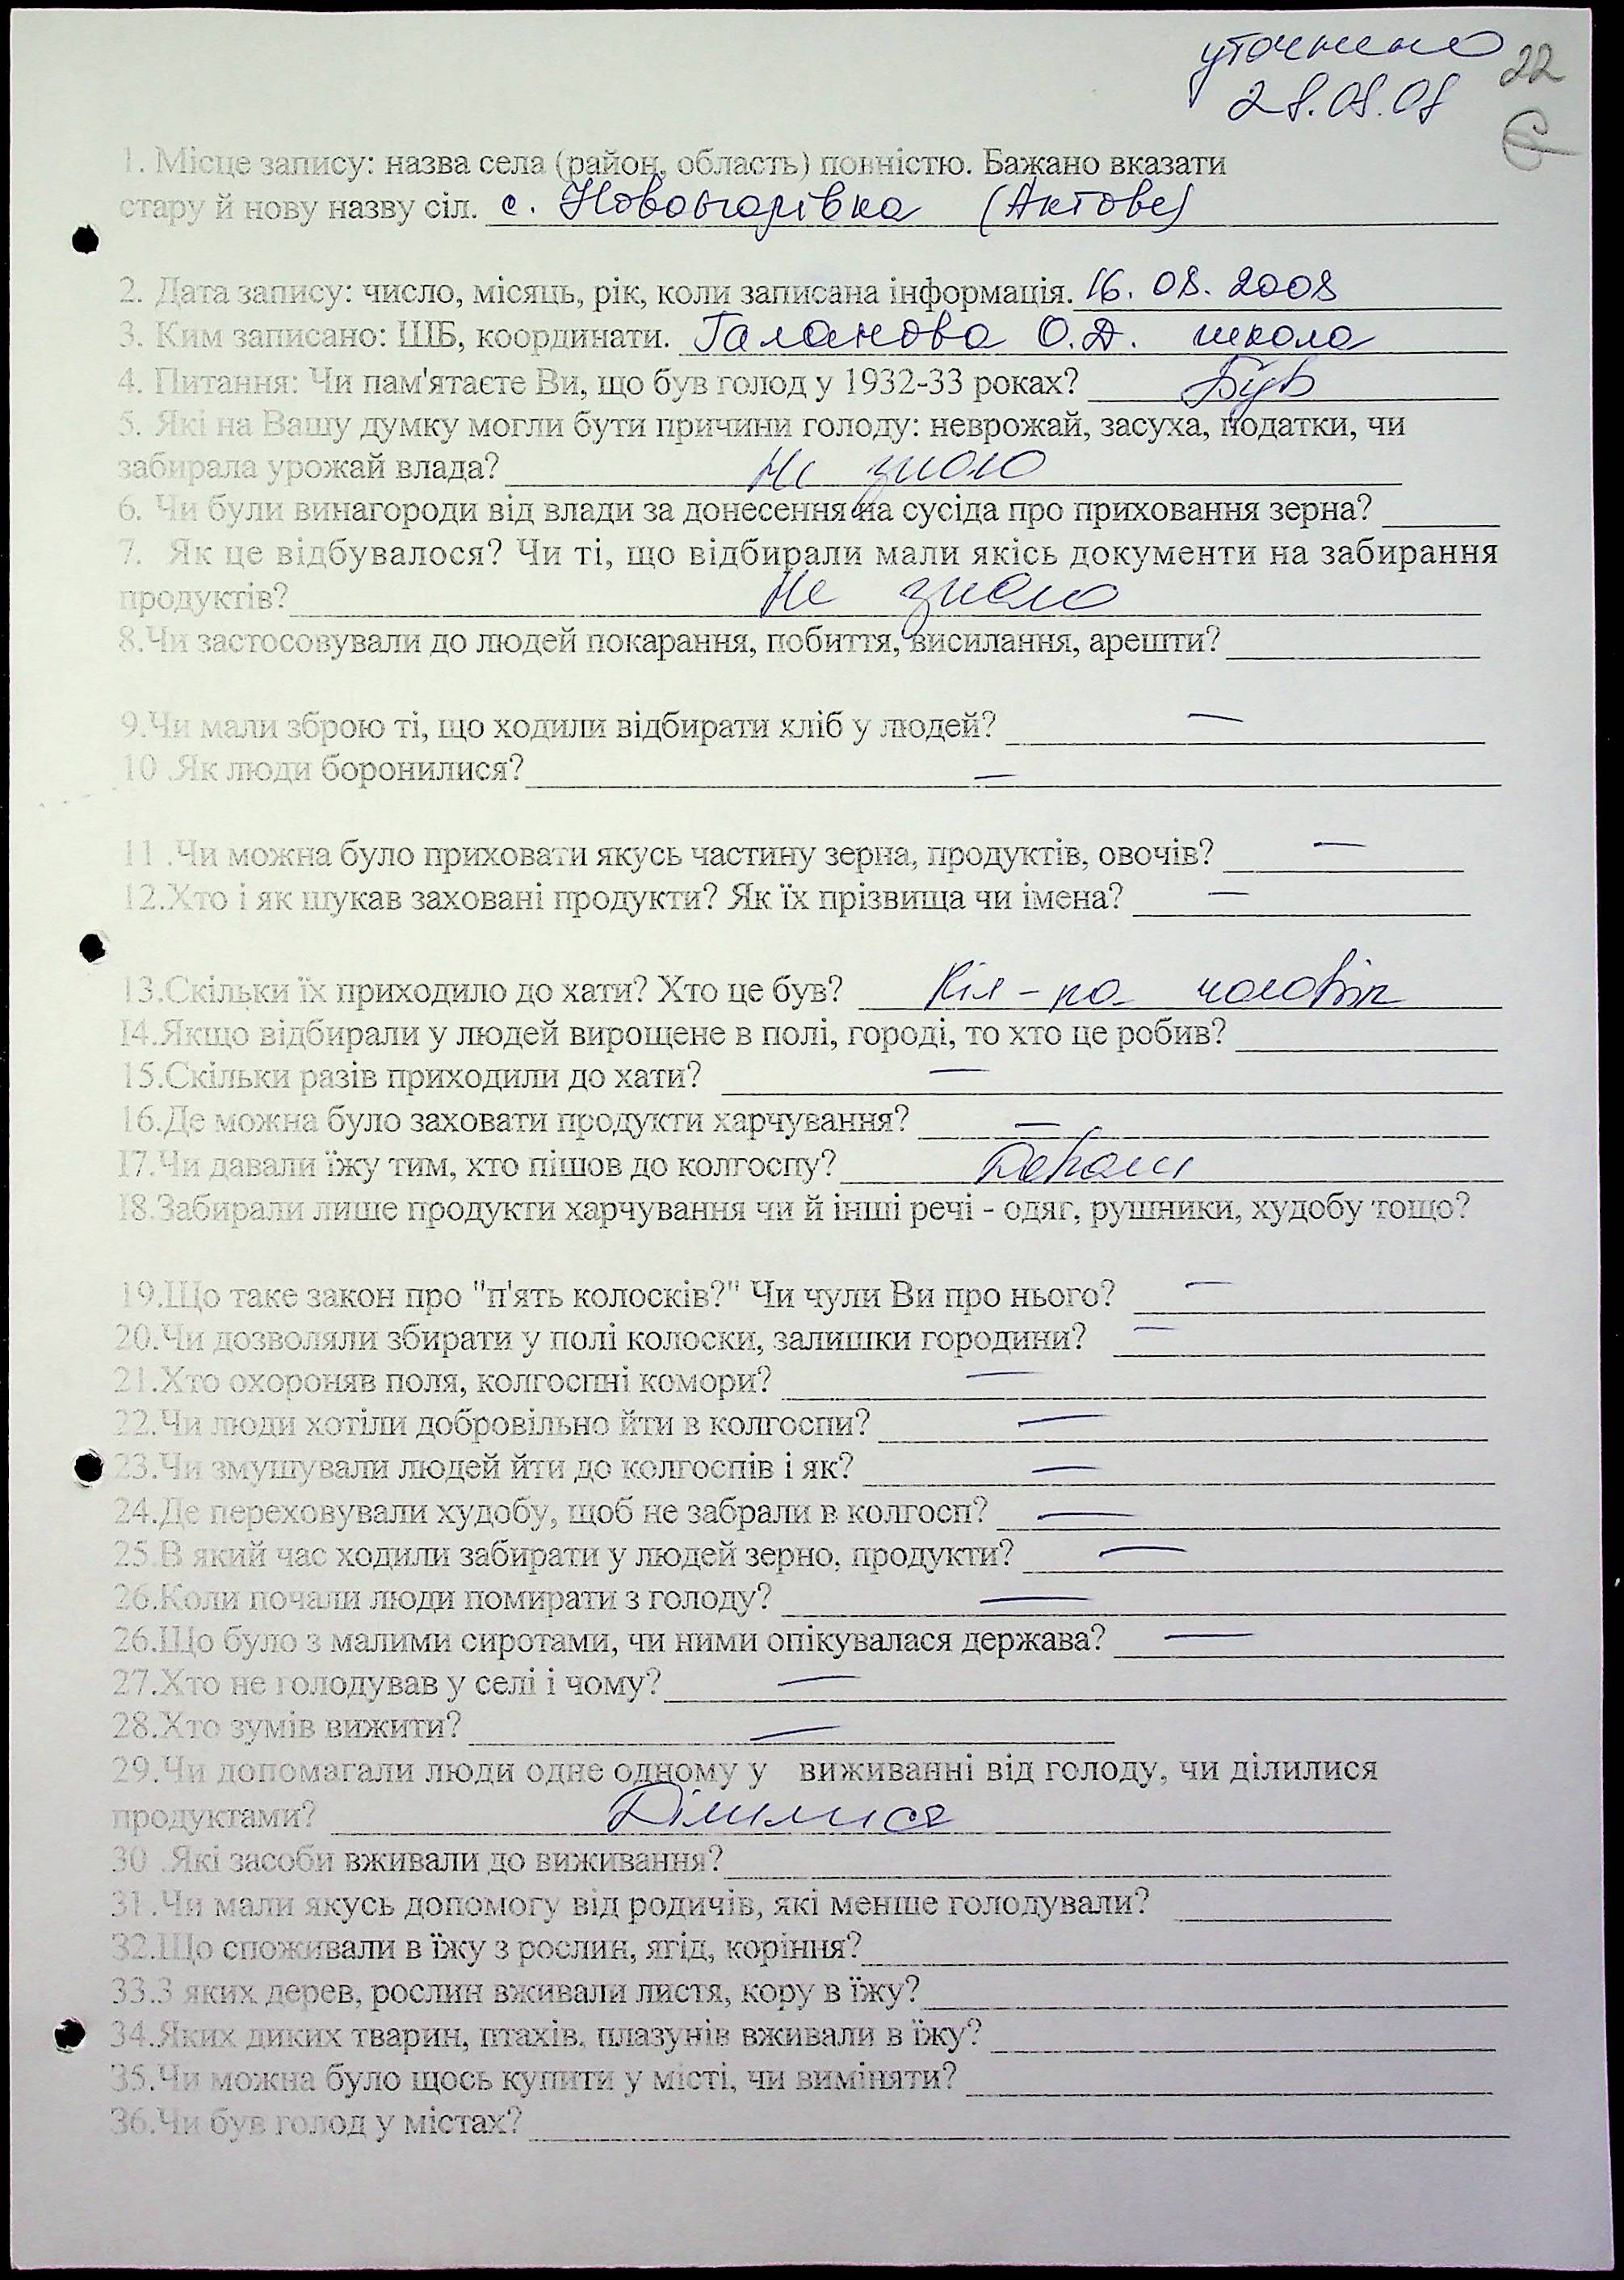 уточнено 22
28.08.08
1. Місце запису: назва села (район, область) повністю. Бажано вказати
стару й нову назву сіл. с. Новоігорівка (Актове)
2. Дата запису: число, місяць, рік, коли записана інформація. 16.08.2008
3. Ким записано: ШБ, координати. Галанова О.Д. школа
4. Питання: Чи пам'ятаєте Ви, що був голод у 1932-33 роках? Був
5. Які на Вашу думку могли бути причини голоду: неврожай, засуха, податки, чи
забирала урожай влада? Не знаю
6. Чи були винагороди від влади за донесення на сусіда про приховання зерна?
7. Як це відбувалося? Чи ті, що відбирали мали якісь документи на забирання
продуктів? Не знаю
8.Чи застосовували до людей покарання, побиття, висилання, арешти?
9.Чи мали зброю ті, що ходили відбирати хліб у людей? —
10 .Як люди боронилися? —
11 .Чи можна було приховати якусь частину зерна, продуктів, овочів? —
12.Хто і як шукав заховані продукти? Як їх прізвища чи імена? —
13.Скільки їх приходило до хати? Хто це був? Кіл-ка чоловік
14.Якщо відбирали у людей вирощене в полі, городі, то хто це робив?
15.Скільки разів приходили до хати? —
16.Де можна було заховати продукти харчування? —
17.Чи давали їжу тим, хто пішов до колгоспу? Давали
18.Забирали лише продукти харчування чи й інші речі - одяг, рушники, худобу тощо?
19.Що таке закон про "п'ять колосків?" Чи чули Ви про нього? —
20.Чи дозволяли збирати у полі колоски, залишки городини? —
21.Хто охороняв поля, колгоспні комори? —
22.Чи люди хотіли добровільно йти в колгоспи? —
23.Чи змушували людей йти до колгоспів і як? —
24.Де переховували худобу, щоб не забрали в колгосп? —
25.В який час ходили забирати у людей зерно, продукти? —
26.Коли почали люди помирати з голоду? —
26.Що було з малими сиротами, чи ними опікувалася держава? —
27.Хто не голодував у селі і чому? —
28.Хто зумів вижити? —
29.Чи допомагали люди одне одному у виживанні від голоду, чи ділилися
продуктами? Ділилися
30 .Які засоби вживали до виживання?
31.Чи мали якусь допомогу від родичів, які менше голодували?
32.Що споживали в їжу з рослин, ягід, коріння?
33.З яких дерев, рослин вживали листя, кору в їжу?
34.Яких диких тварин, птахів, плазунів вживали в їжу?
35.Чи можна було щось купити у місті, чи виміняти?
36.Чи був голод у містах?